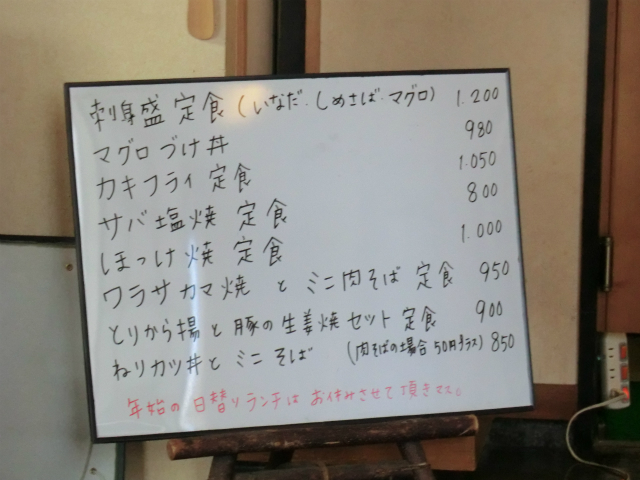 刺身盛定食(いなだ・しめさば・マグロ) 1.200
マグロづけ丼 980
カキフライ定食 1.050
サバ塩焼定食 800
ほっけ焼定食 1.000
ワラサカマ焼とミニ肉そば定食 950
とりから揚と豚の生姜焼セット定食 900
カツ丼とミニそば (肉そばの場合50円プラス) 850
年始の日替りランチはお休みさせて頂きます。